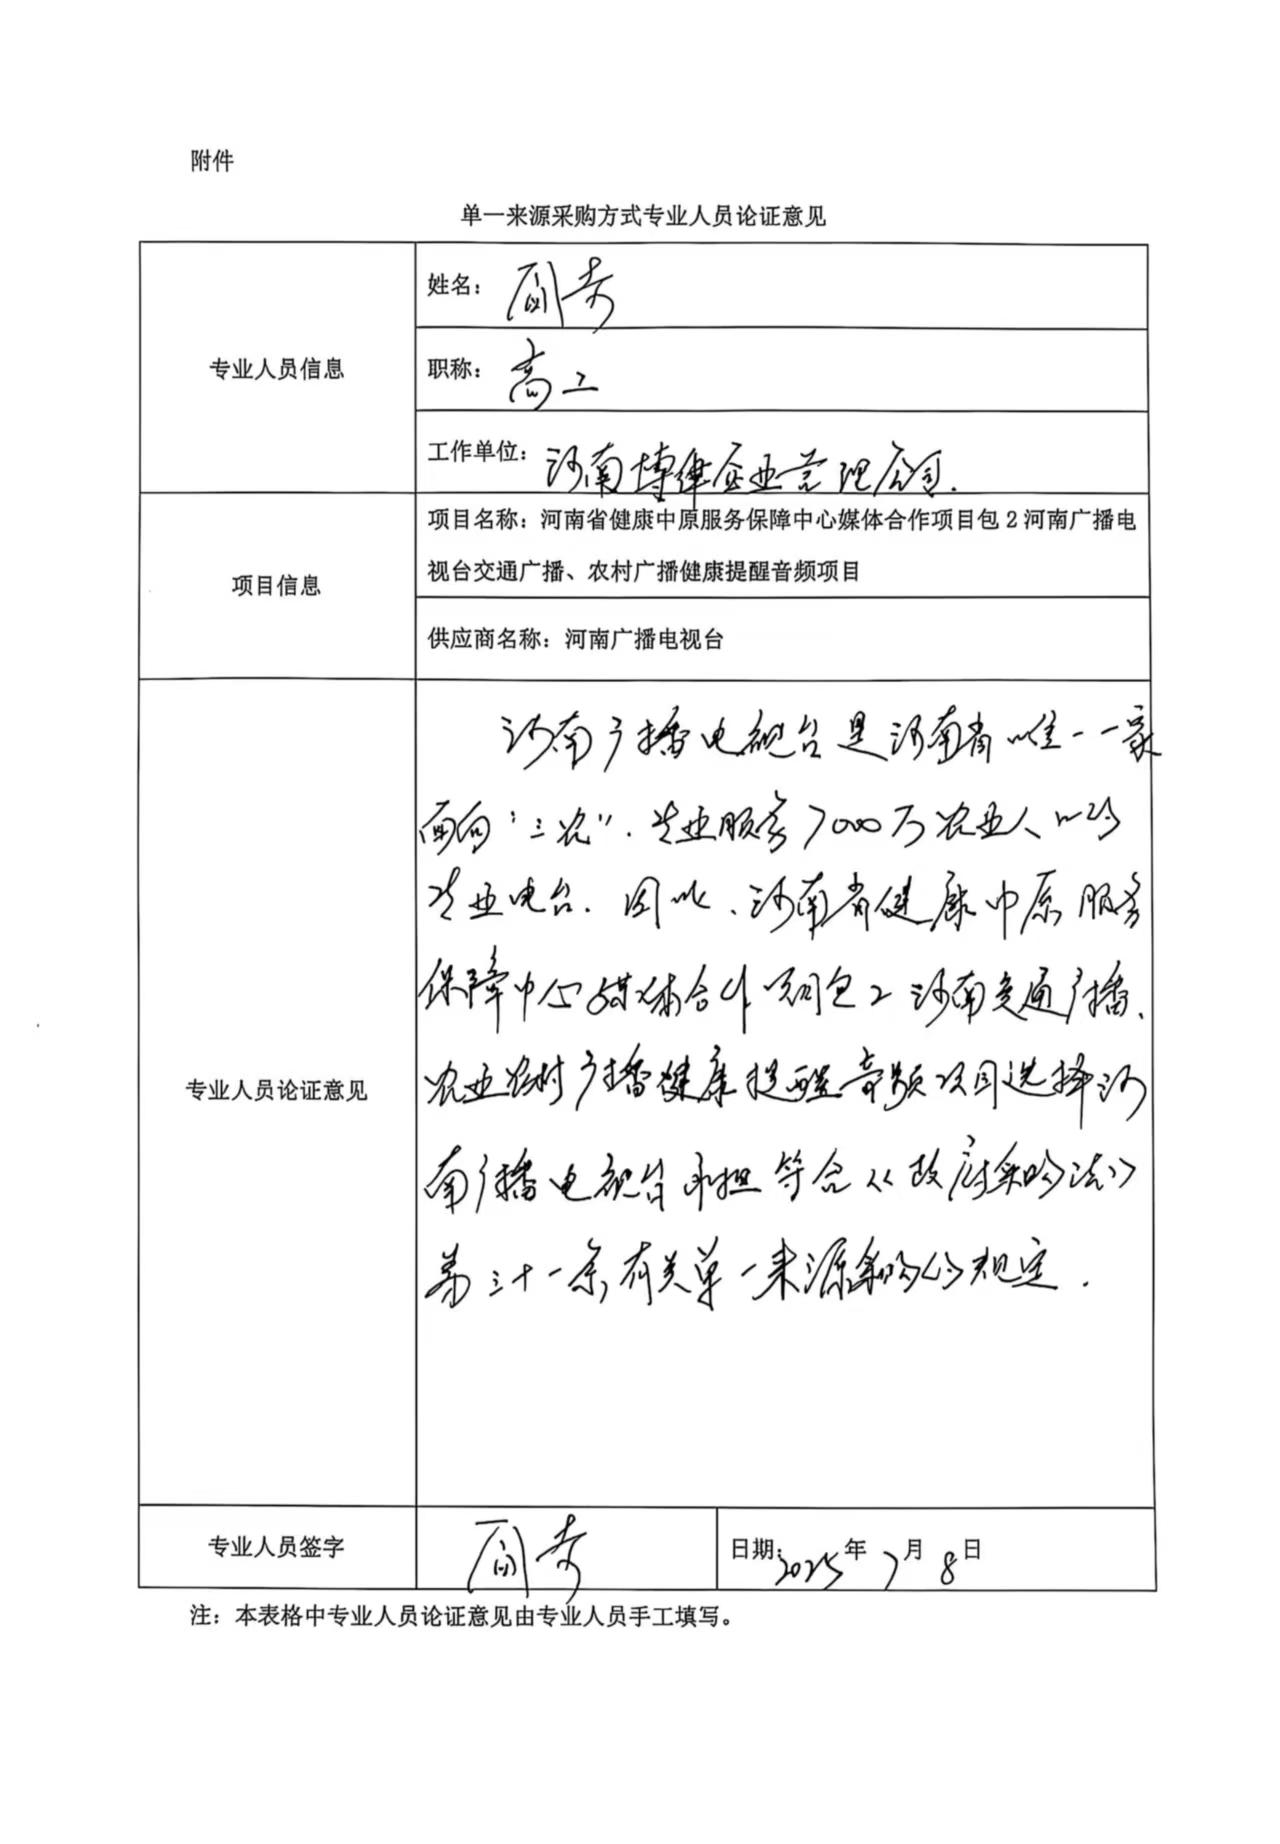 附件
单一来源采购方式专业人员论证意见
专业人员信息
姓名：
职称：高工
工作单位：河南博纬企业管理公司.
项目信息
项目名称：河南省健康中原服务保障中心媒体合作项目包2河南广播电
视台交通广播、农村广播健康提醒音频项目
供应商名称：河南广播电视台
专业人员论证意见
河南广播电视台是河南省唯一一家
面向“三农”、专业服务7000万农业人口的
专业电台. 因此、河南省健康中原服务
保障中心媒体合作项目包2河南交通广播、
农业农村广播健康提醒音频项目选择河
南广播电视台承担符合《政府采购法》
第三十一条有关单一来源采购的规定.
专业人员签字
日期：2025年7月8日
注：本表格中专业人员论证意见由专业人员手工填写。